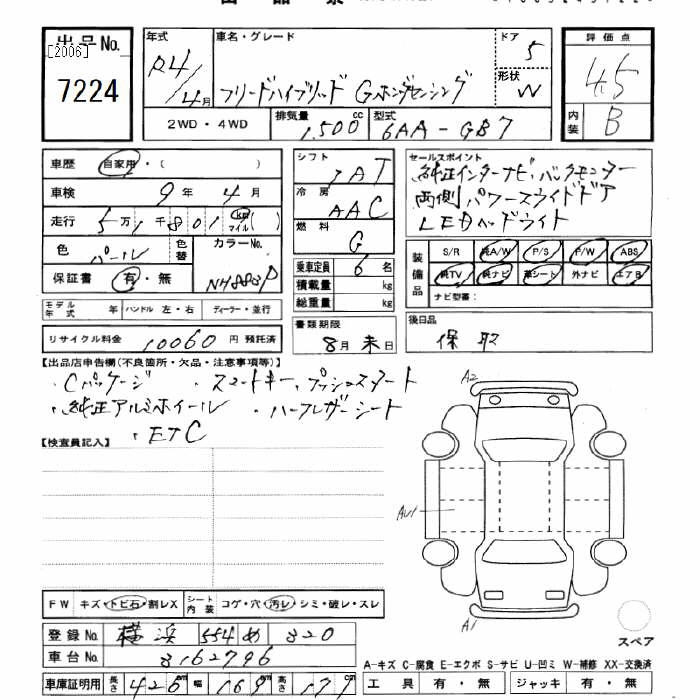 出品No.
[2006]
7224
年式
R4/4月
車名・グレード
フリードハイブリッド Gホンダセンシング
ドア
5
形状
W
評価点
4.5
内装
B
2WD・4WD
排気量
1,500 cc
型式
6AA-GB7
車歴 自家用・( )
車検 9年 4月
走行 5万1千801 km マイル ( )
色 パール
色替
カラーNo.
NH883P
保証書 有・無
シフト
IAT
冷房
AAC
燃料
G
乗車定員 6名
積載量 kg
総重量 kg
セールスポイント
純正インターナビ,バックモニター
両側パワースライドドア
LEDヘッドライト
装備品
S/R 純A/W P/S P/W ABS
純TV 純ナビ 革シート 外ナビ エアB
ナビ型番:
モデル年式 年 ハンドル 左・右 ディーラー・並行
リサイクル料金 10060円 預託済
書類期限
8月末日
後日品
保 取
【出品店申告欄(不良箇所・欠品・注意事項等)】
・Cパッケージ ・スマートキー,プッシュスタート
・純正アルミホイール ・ハーフレザーシート
・ETC
【検査員記入】
A2
AU1
A1
FW キズ・トビ石・割レX
シート内装 コゲ・穴・汚レ・シミ・破レ・スレ
登録No. 横浜 554 め 320
車台No. 3162796
車庫証明用 長さ 426cm 幅 169cm 高さ 177cm
スペア
A-キズ C-腐食 E-エクボ S-サビ U-凹ミ W-補修 XX-交換済
工具 有・無 ジャッキ 有・無